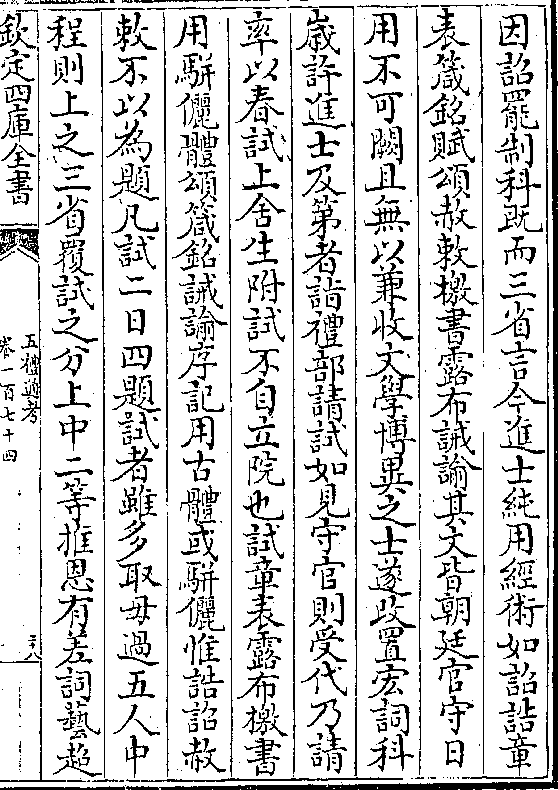 因詔罷制科既而三省言今進士純用經術如詔誥章
表箴銘賦頌赦敕檄書露布誡諭其文皆朝廷官守日
用不可闕且無以兼收文學博異之士遂改置宏詞科
歲許進士及第者詣禮部請試如見守官則受代乃請
率以春試上舍生附試不自立院也試章表露布檄書
用駢儷體頌箴銘誡諭序記用古體或駢儷惟誥詔赦
敕不以為題凡試二日四題試者雖多取毋過五人中
程則上之三省覆試之分上中二等推恩有差詞藝超
欽定四庫全書
五禮通考
卷一百七十四
三八